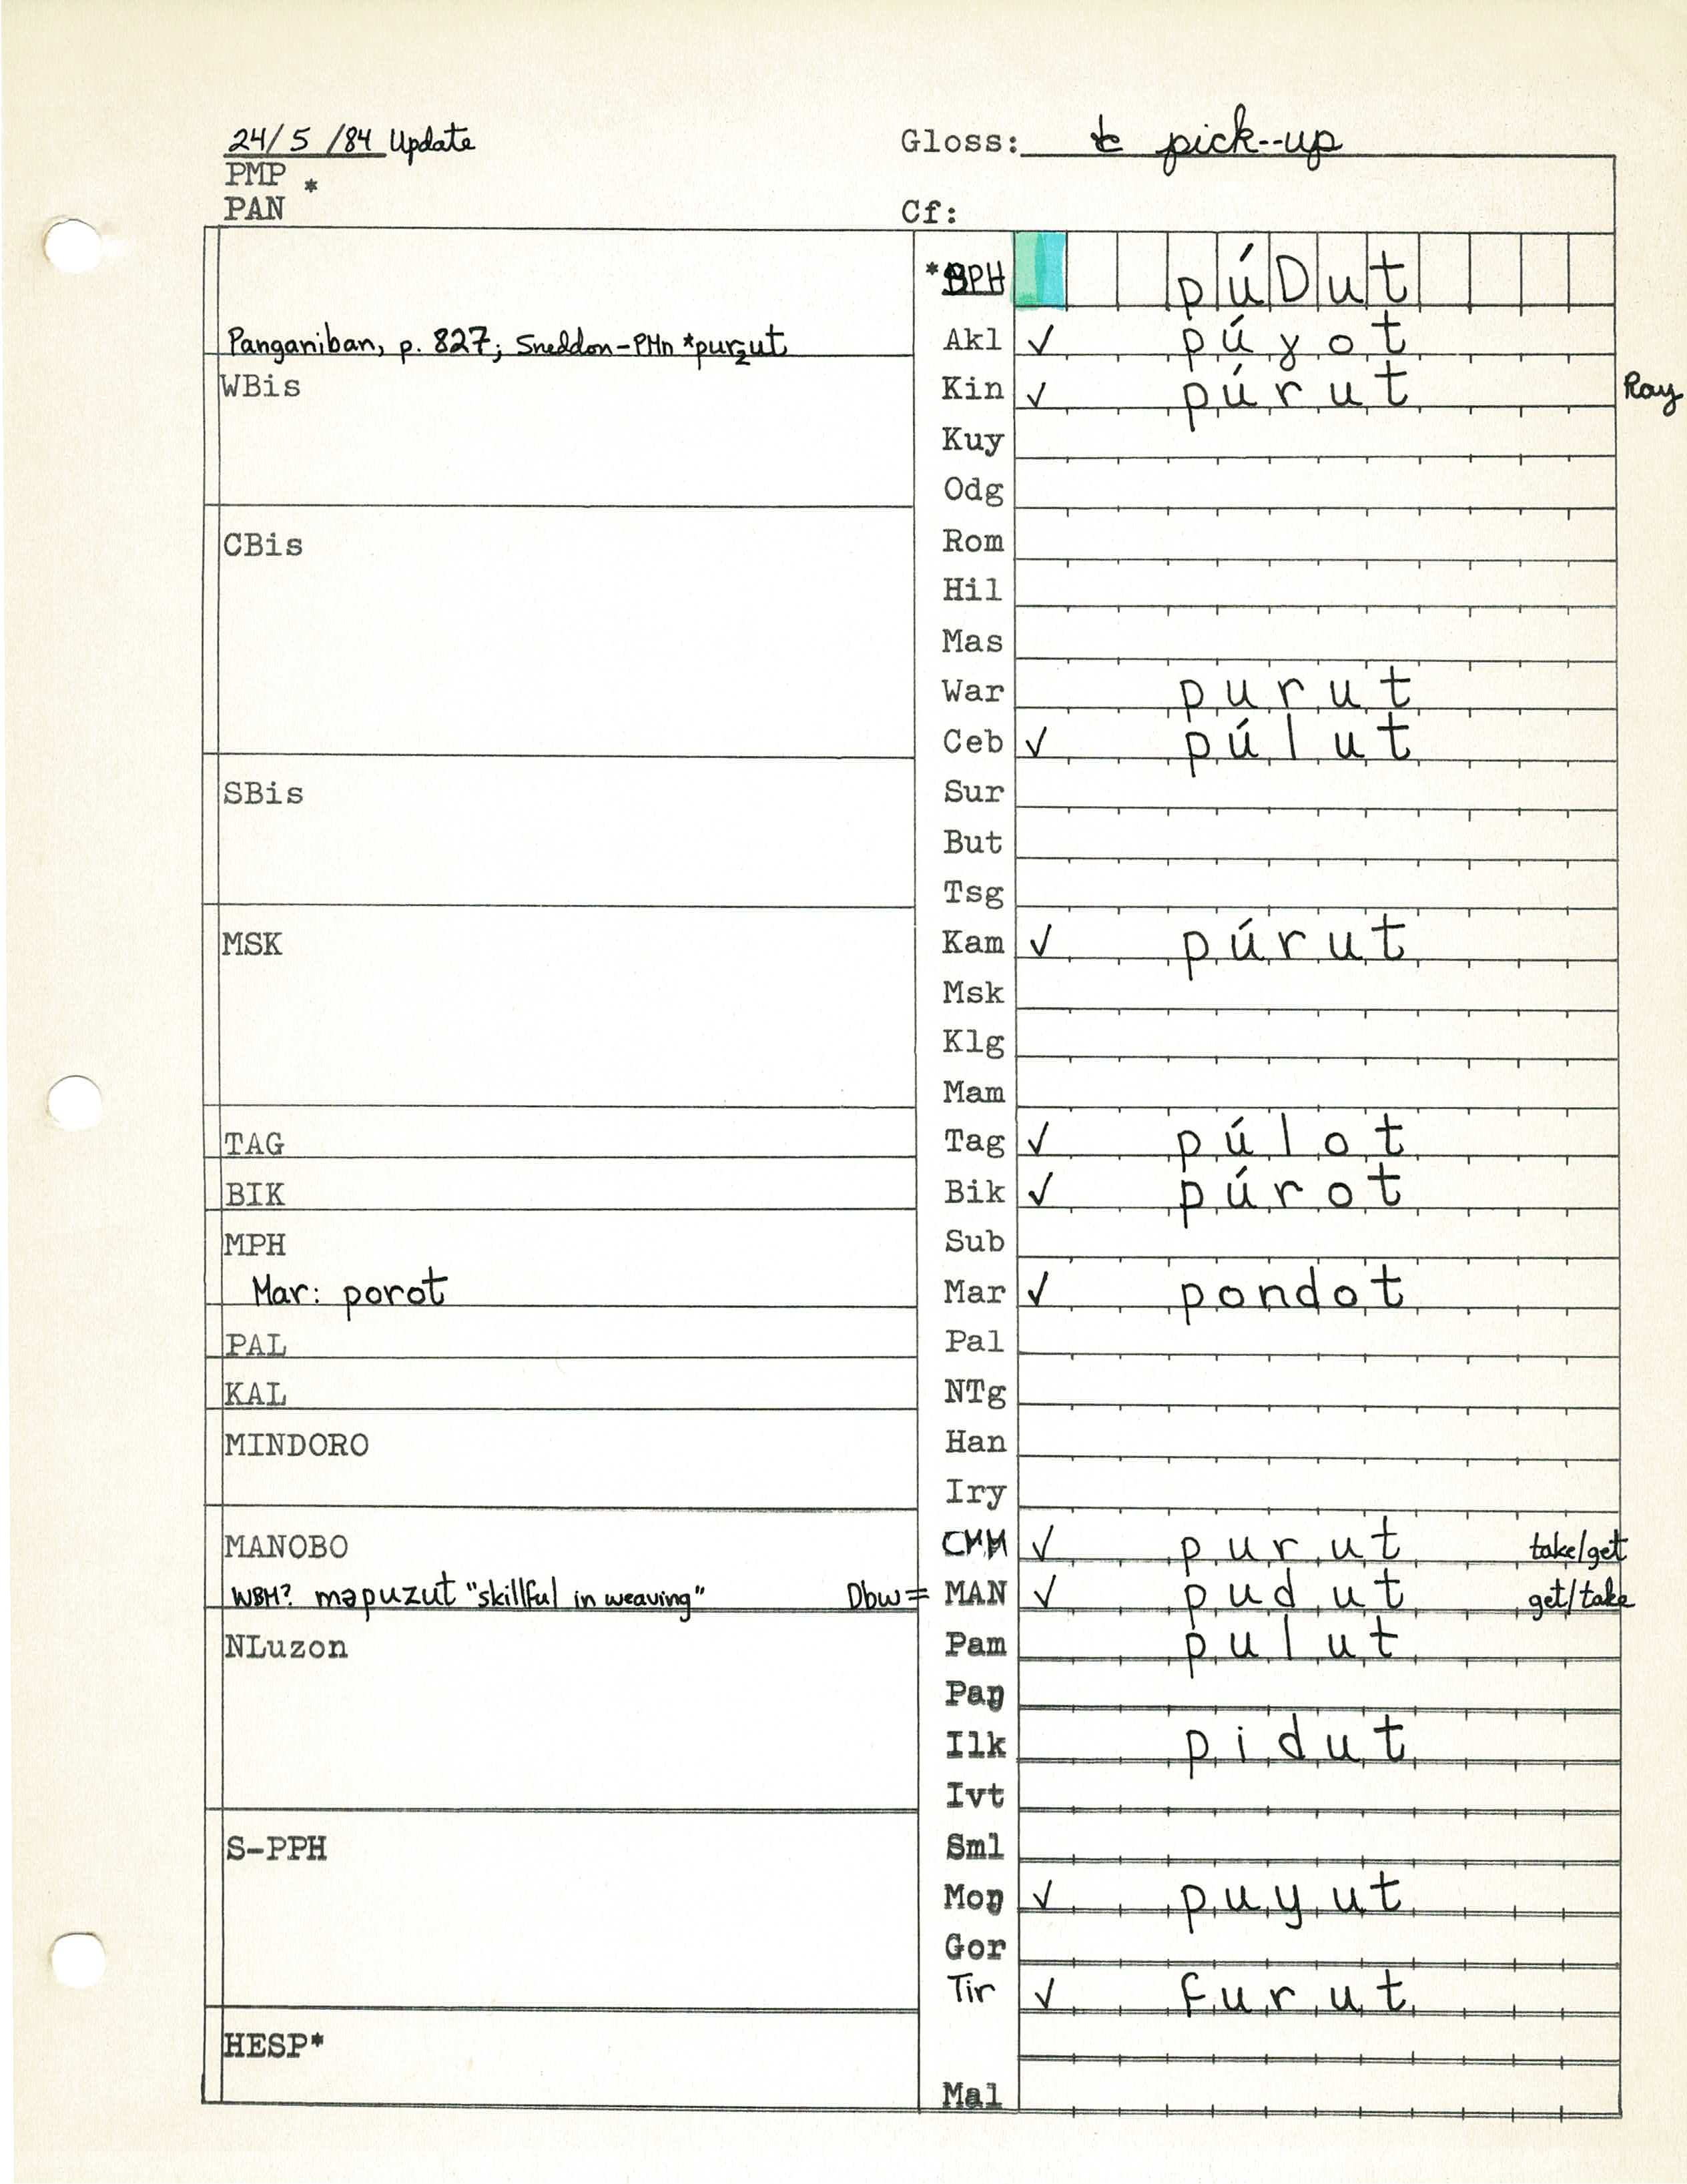 24/5/84 Update Gloss: to pick-up
PMP *
PAN Cf:
*PPH púDut
Panganiban, p. 827; Sneddon-PMn *purzut Akl ✓ púɣot
WBis Kin ✓ púrut Ray
Kuy
Odg
CBis Rom
Hil
Mas
War purut
Ceb ✓ púlut
SBis Sur
But
Tsg
MSK Kam ✓ púrut
Msk
Klg
Mam
TAG Tag ✓ púlot
BIK Bik ✓ púrot
MPH Sub
Mar: porot Mar ✓ pondot
PAL Pal
KAL NTg
MINDORO Han
Iry
MANOBO CMM ✓ purut take/get
WBM? məpuzut "skillful in weaving" Dbw = MAN ✓ pudut get/take
NLuzon Pam pulut
Paŋ
Ilk pidut
Ivt
S-PPH Sml
Moŋ ✓ puyut
Gor
Tir ✓ furut
HESP*
Mal